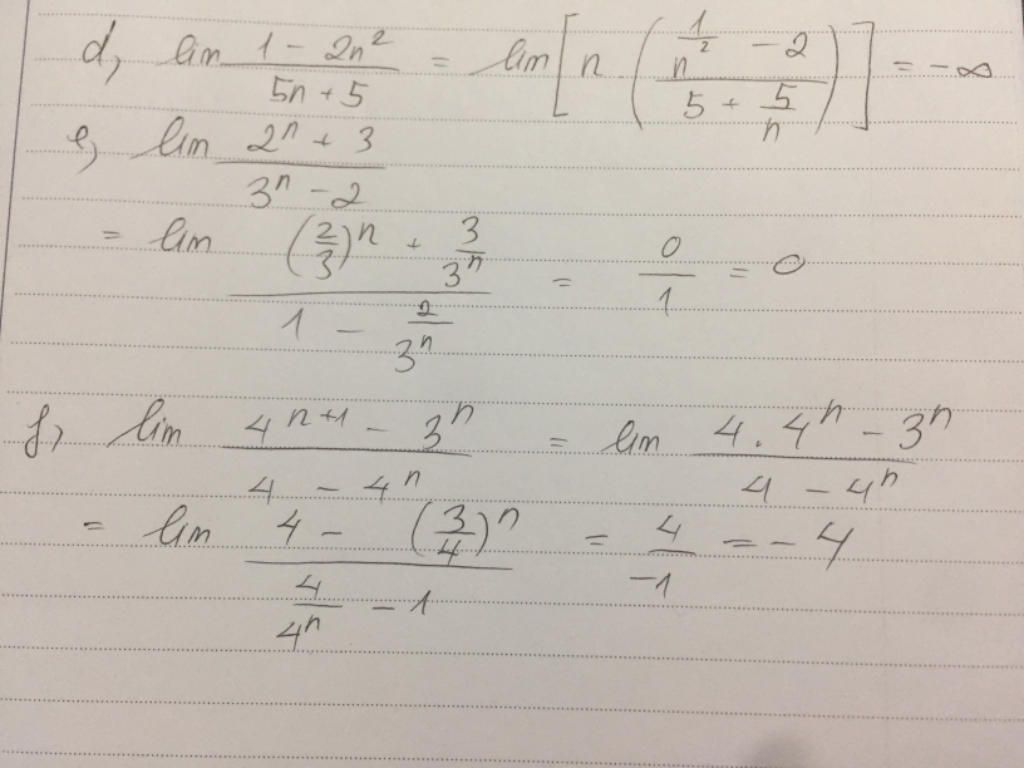 d, lim (1 - 2n²)/(5n + 5) = lim [ n . ( (1/n² - 2)/(5 + 5/n) ) ] = -∞
e, lim (2ⁿ + 3)/(3ⁿ - 2)
= lim ((2/3)ⁿ + 3/3ⁿ)/(1 - 2/3ⁿ) = 0/1 = 0
f, lim (4ⁿ⁺¹ - 3ⁿ)/(4 - 4ⁿ) = lim (4 . 4ⁿ - 3ⁿ)/(4 - 4ⁿ)
= lim (4 - (3/4)ⁿ)/(4/4ⁿ - 1) = 4/-1 = -4